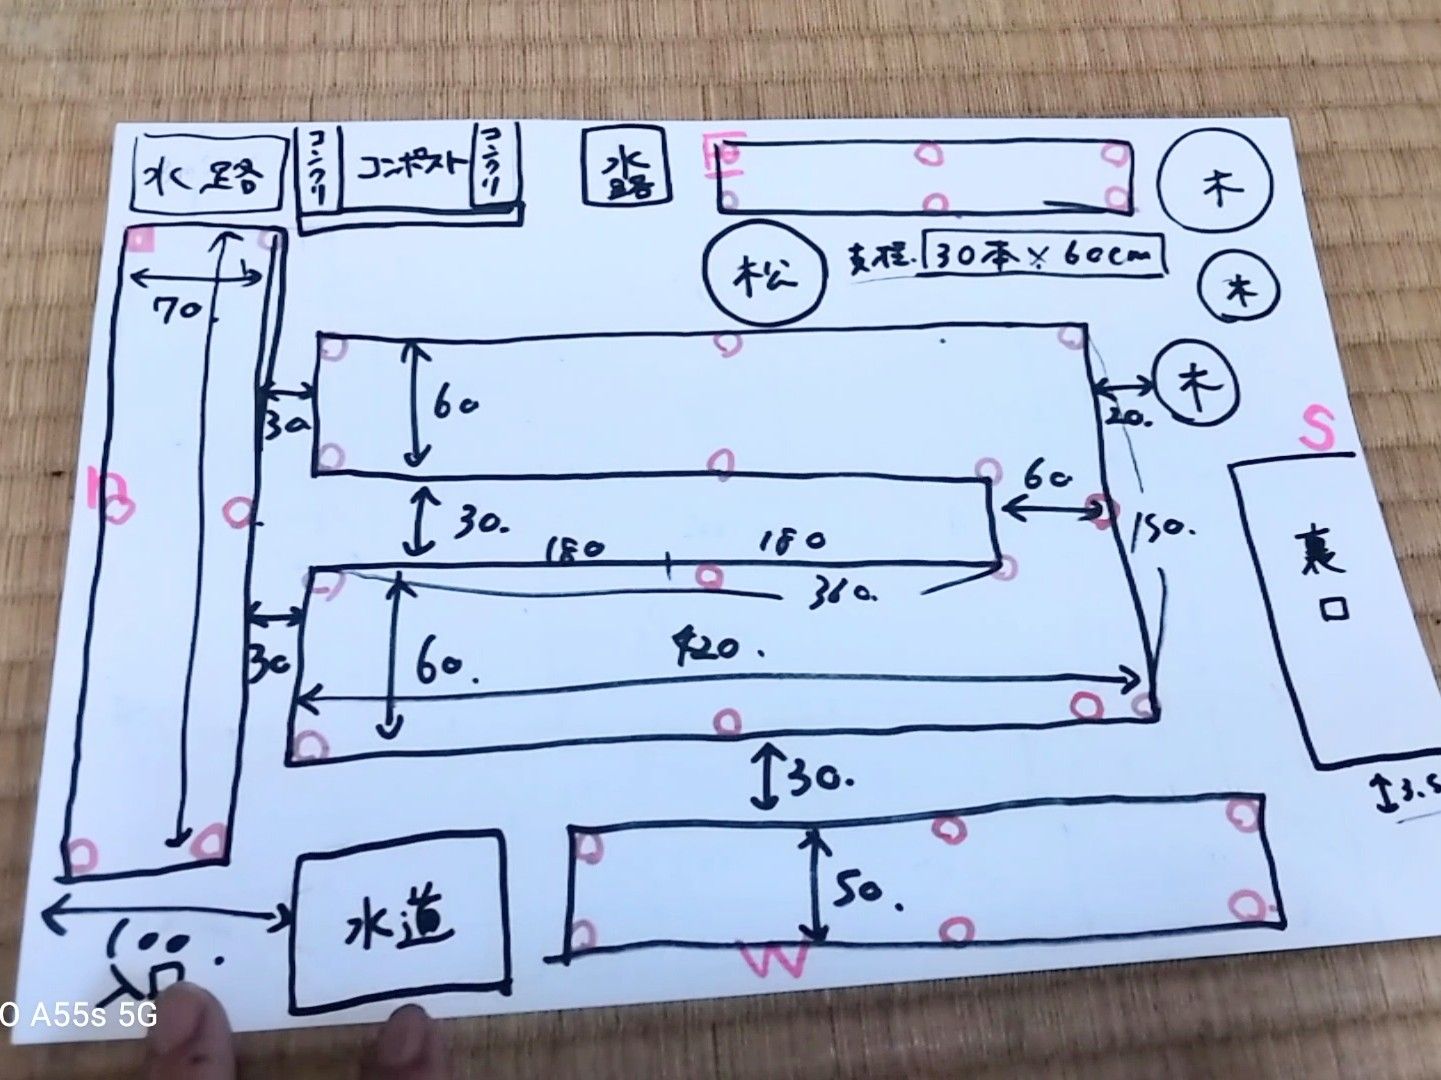 水路
コンクリ
コンポスト
コンクリ
水路
E
木
70
松
支柱 30本×60cm
木
30
60
木
20.
S
n
60
30.
180
180
150.
裏口
360.
30
60.
420.
30.
3.5
50.
水道
W
100.
入口
A55s 5G